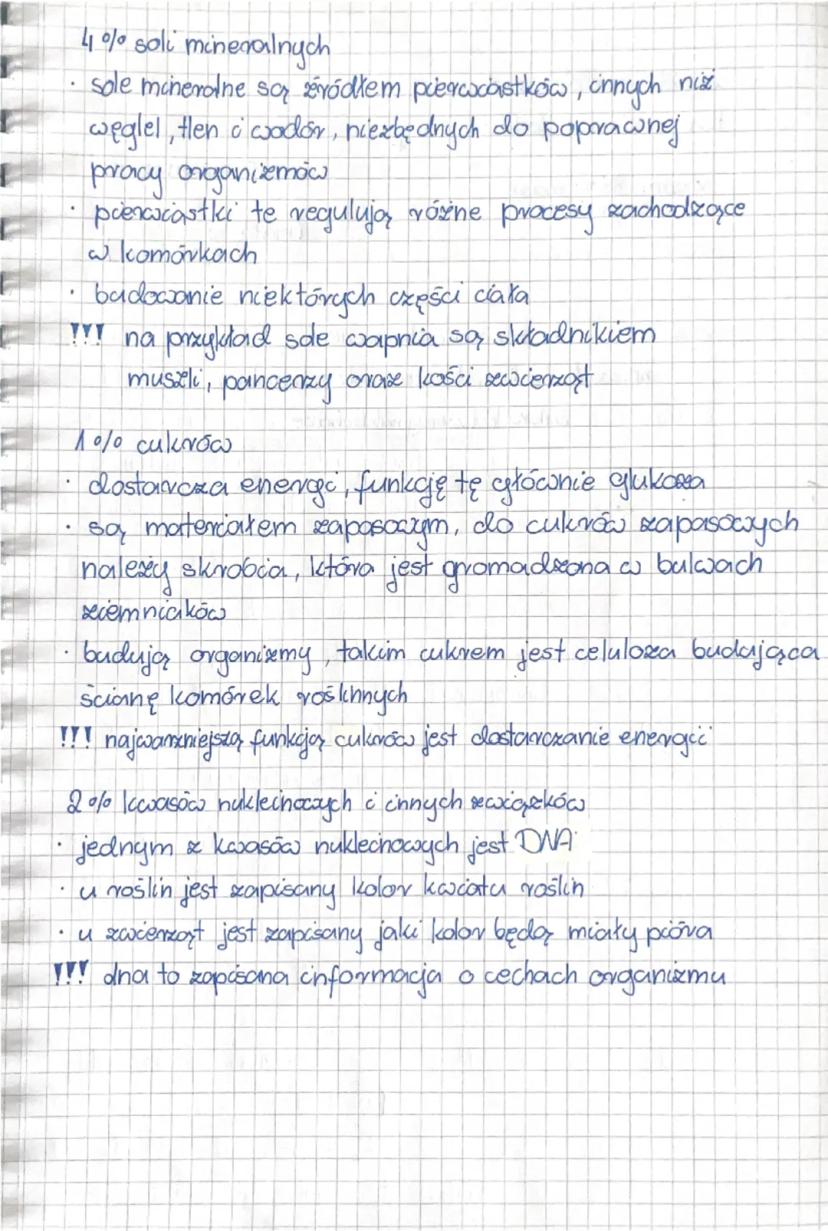 4% soli mineralnych
· sole mineralne są źródłem pierwiastków, innych niż
węglel, tlen i wodór, niezbędnych do poprawnej
pracy organizmów
· pierwiastki te regulują różne procesy zachodzące
w komórkach
· budowanie niektórych części ciała
!!! na przykład sole wapnia są składnikiem
muszli, pancerzy oraz kości zwierząt
1% cukrów
· dostarcza energi, funkcję tę głównie glukoza
· są materiałem zaposowym, do cukrów zapasowych
należy skrobia, która jest gromadzona w bulwach
ziemniaków
· budują organizmy, takim cukrem jest celuloza budująca
ścianę komórek roślinnych
!!! najwarzniejszą funkcją cukrów jest dostarczanie energii
2% kwasów nukleinowych i innych związków
· jednym z kwasów nukleinowych jest DNA
· u roślin jest zapisany kolor kwiatu roślin
· u zwierząt jest zapisany jaki kolor będą miały pióra
!!! dna to zapisana informacja o cechach organizmu